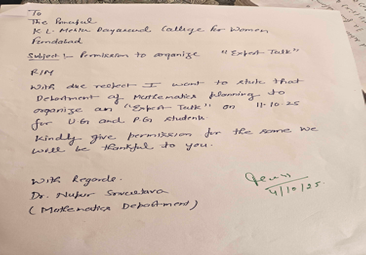 To
The Principal
K.L. Mehta Dayanand College for Women
Faridabad
Subject :- Permission to organize "Expert Talk"
R/M
With due respect I want to state that
Department of Mathematics planning to
organize an "Expert Talk" on 11.10.25
for UG and P.G students
Kindly give permission for the same we
will be thankful to you.
With Regards.
Dr. Nupur Srivastava
(Mathematics Department)
4/10/25.